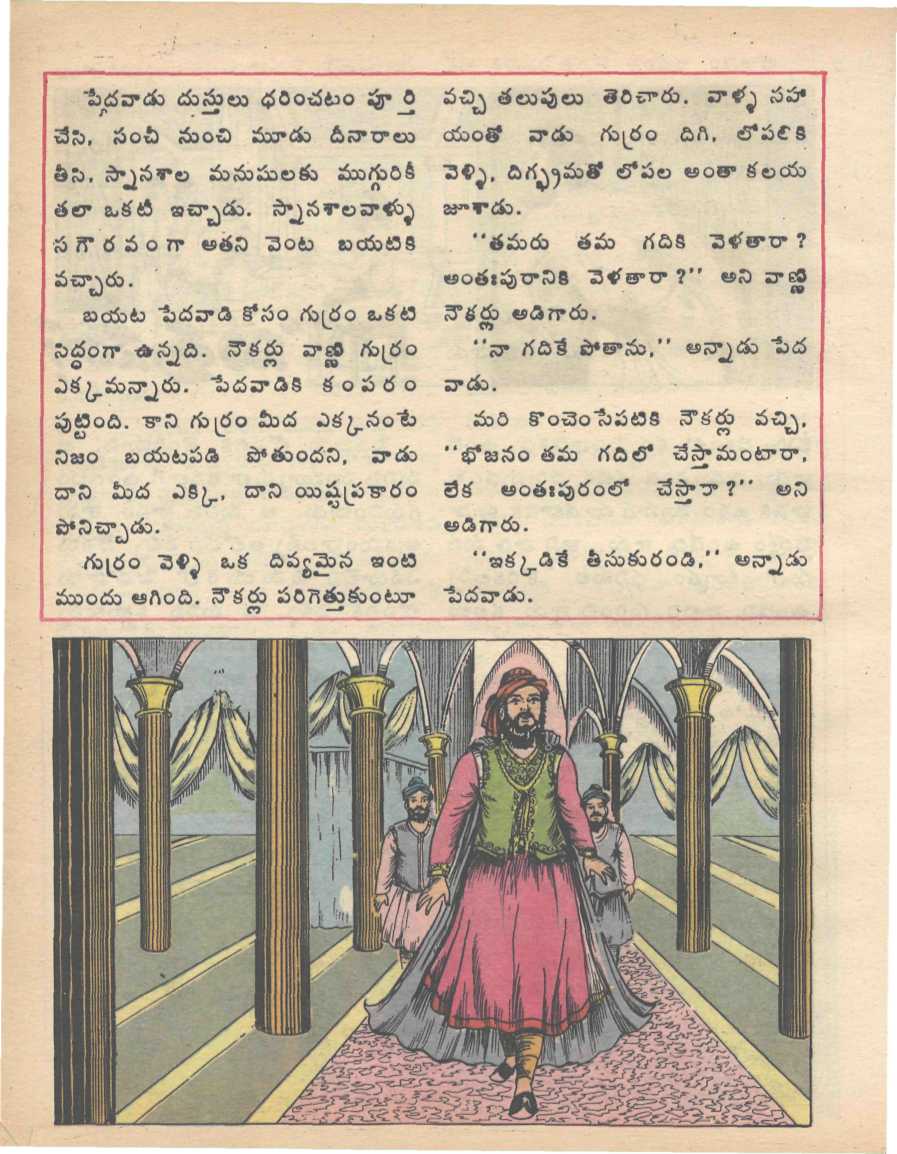 పేదవాడు దుస్తులు ధరించటం పూర్తి
చేసి, సంచీ నుంచి మూడు దీనారాలు
తీసి, స్నానశాల మనుషులకు ముగ్గురికీ
తలా ఒకటీ ఇచ్చాడు. స్నానశాలవాళ్ళు
సగౌరవంగా అతని వెంట బయటికి
వచ్చారు.
బయట పేదవాడి కోసం గుర్రం ఒకటి
సిద్ధంగా ఉన్నది. నౌకర్లు వాణ్ణి గుర్రం
ఎక్కమన్నారు. పేదవాడికి కంపరం
పుట్టింది. కాని గుర్రం మీద ఎక్కనంటే
నిజం బయటపడి పోతుందని, వాడు
దాని మీద ఎక్కి, దాని యిష్టప్రకారం
పోనిచ్చాడు.
గుర్రం వెళ్ళి ఒక దివ్యమైన ఇంటి
ముందు ఆగింది. నౌకర్లు పరిగెత్తుకుంటూ
వచ్చి తలుపులు తెరిచారు. వాళ్ళ సహా
యంతో వాడు గుర్రం దిగి, లోపలికి
వెళ్ళి, దిగ్భ్రమతో లోపల అంతా కలయ
జూశాడు.
"తమరు తమ గదికి వెళతారా?
అంతఃపురానికి వెళతారా?" అని వాణ్ణి
నౌకర్లు అడిగారు.
"నా గదికే పోతాను," అన్నాడు పేద
వాడు.
మరి కొంచెంసేపటికి నౌకర్లు వచ్చి,
"భోజనం తమ గదిలో చేస్తామంటారా,
లేక అంతఃపురంలో చేస్తారా?" అని
అడిగారు.
"ఇక్కడికే తీసుకురండి," అన్నాడు
పేదవాడు.